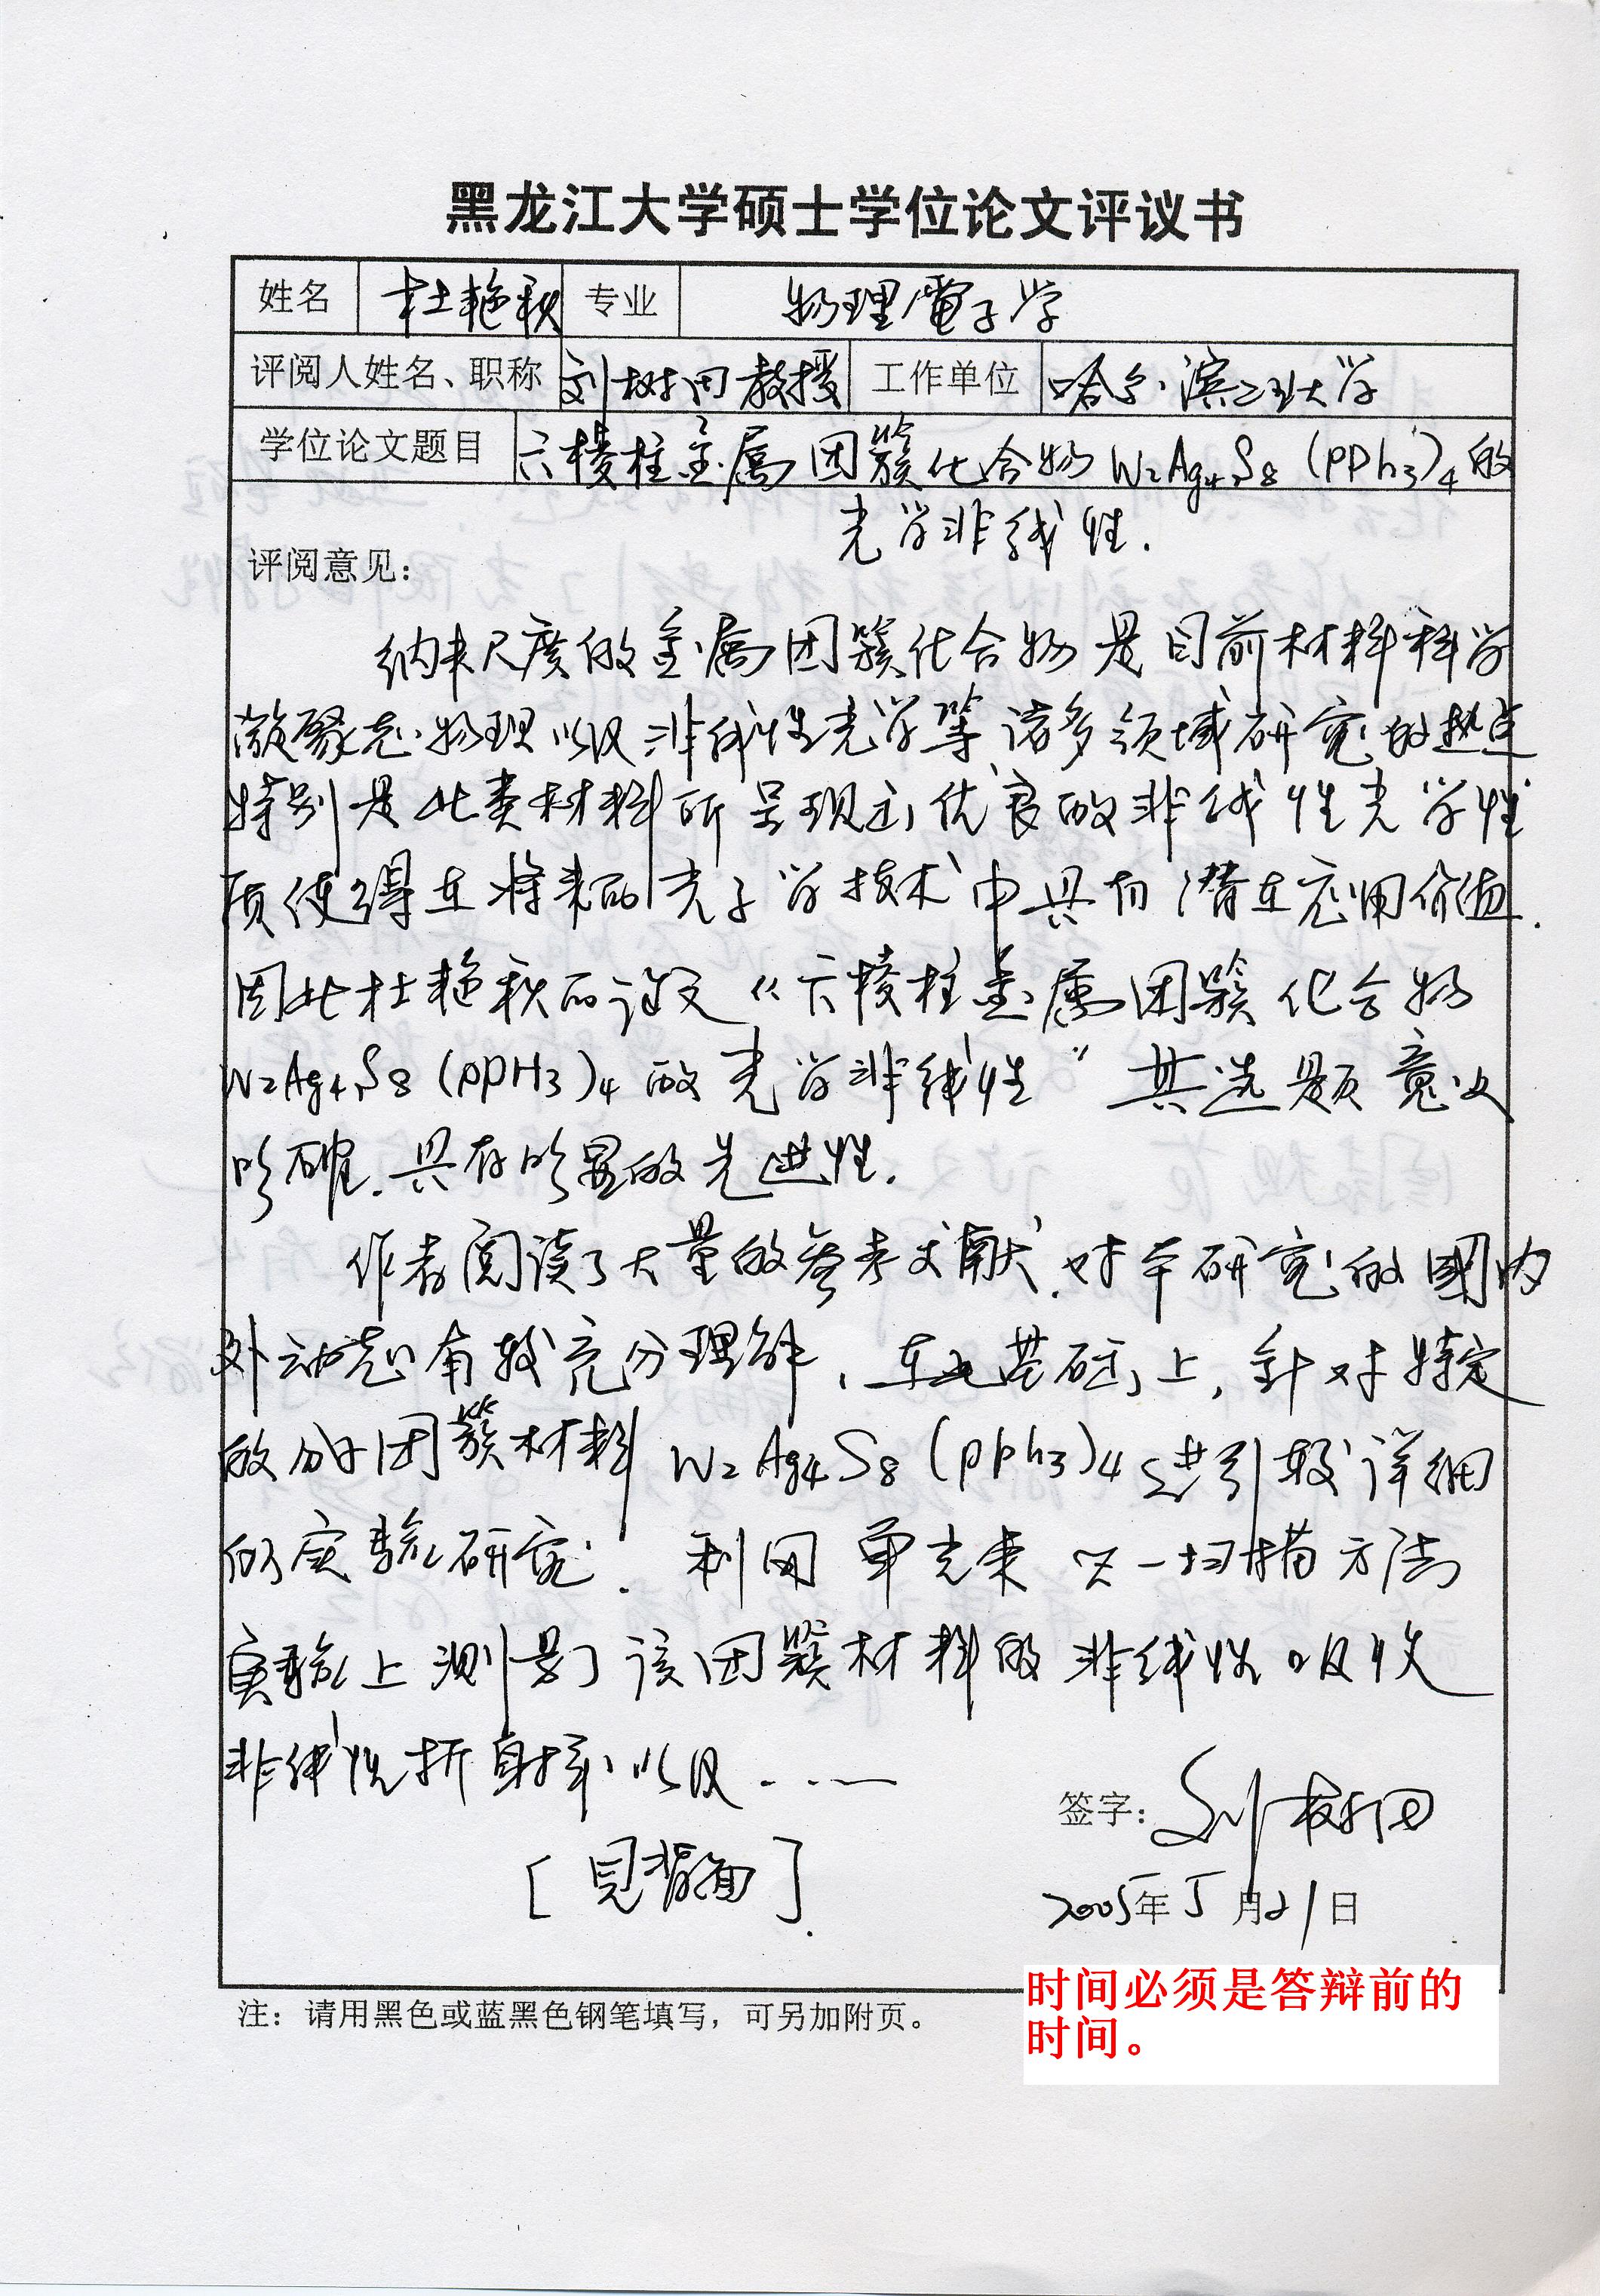 黑龙江大学硕士学位论文评议书
姓名 杜艳秋 专业 物理電子学
评阅人姓名、职称 刘树田教授 工作单位 哈尔滨工业大学
学位论文题目 六棱柱金属团簇化合物 W2Ag4S8(PPh3)4的
光学非线性.
评阅意见:
纳米尺度的金属团簇化合物是目前材料科学
凝聚态物理以及非线性光学等诸多领域研究的热点
特别是此类材料所呈现出优良的非线性光学性
质使得在将来的光子学技术中具有潜在应用价值.
因此杜艳秋的论文《六棱柱金属团簇化合物
W2Ag4S8(PPH3)4的光学非线性" 其选题意义
明确.具有明显的先进性.
作者阅读了大量的参考文献.对本研究的國内
外动态有较充分理解,在此基础上,针对特定
的分子团簇材料 W2Ag4S8(pph3)4进行较详细
的实验研究. 利用单光束Z-扫描方法
实验上测量了该团簇材料的非线性吸收
非线性折射率以及.....
[見背面].
签字: 刘树田
2005年5月21日
注: 请用黑色或蓝黑色钢笔填写, 可另加附页。
时间必须是答辩前的
时间。